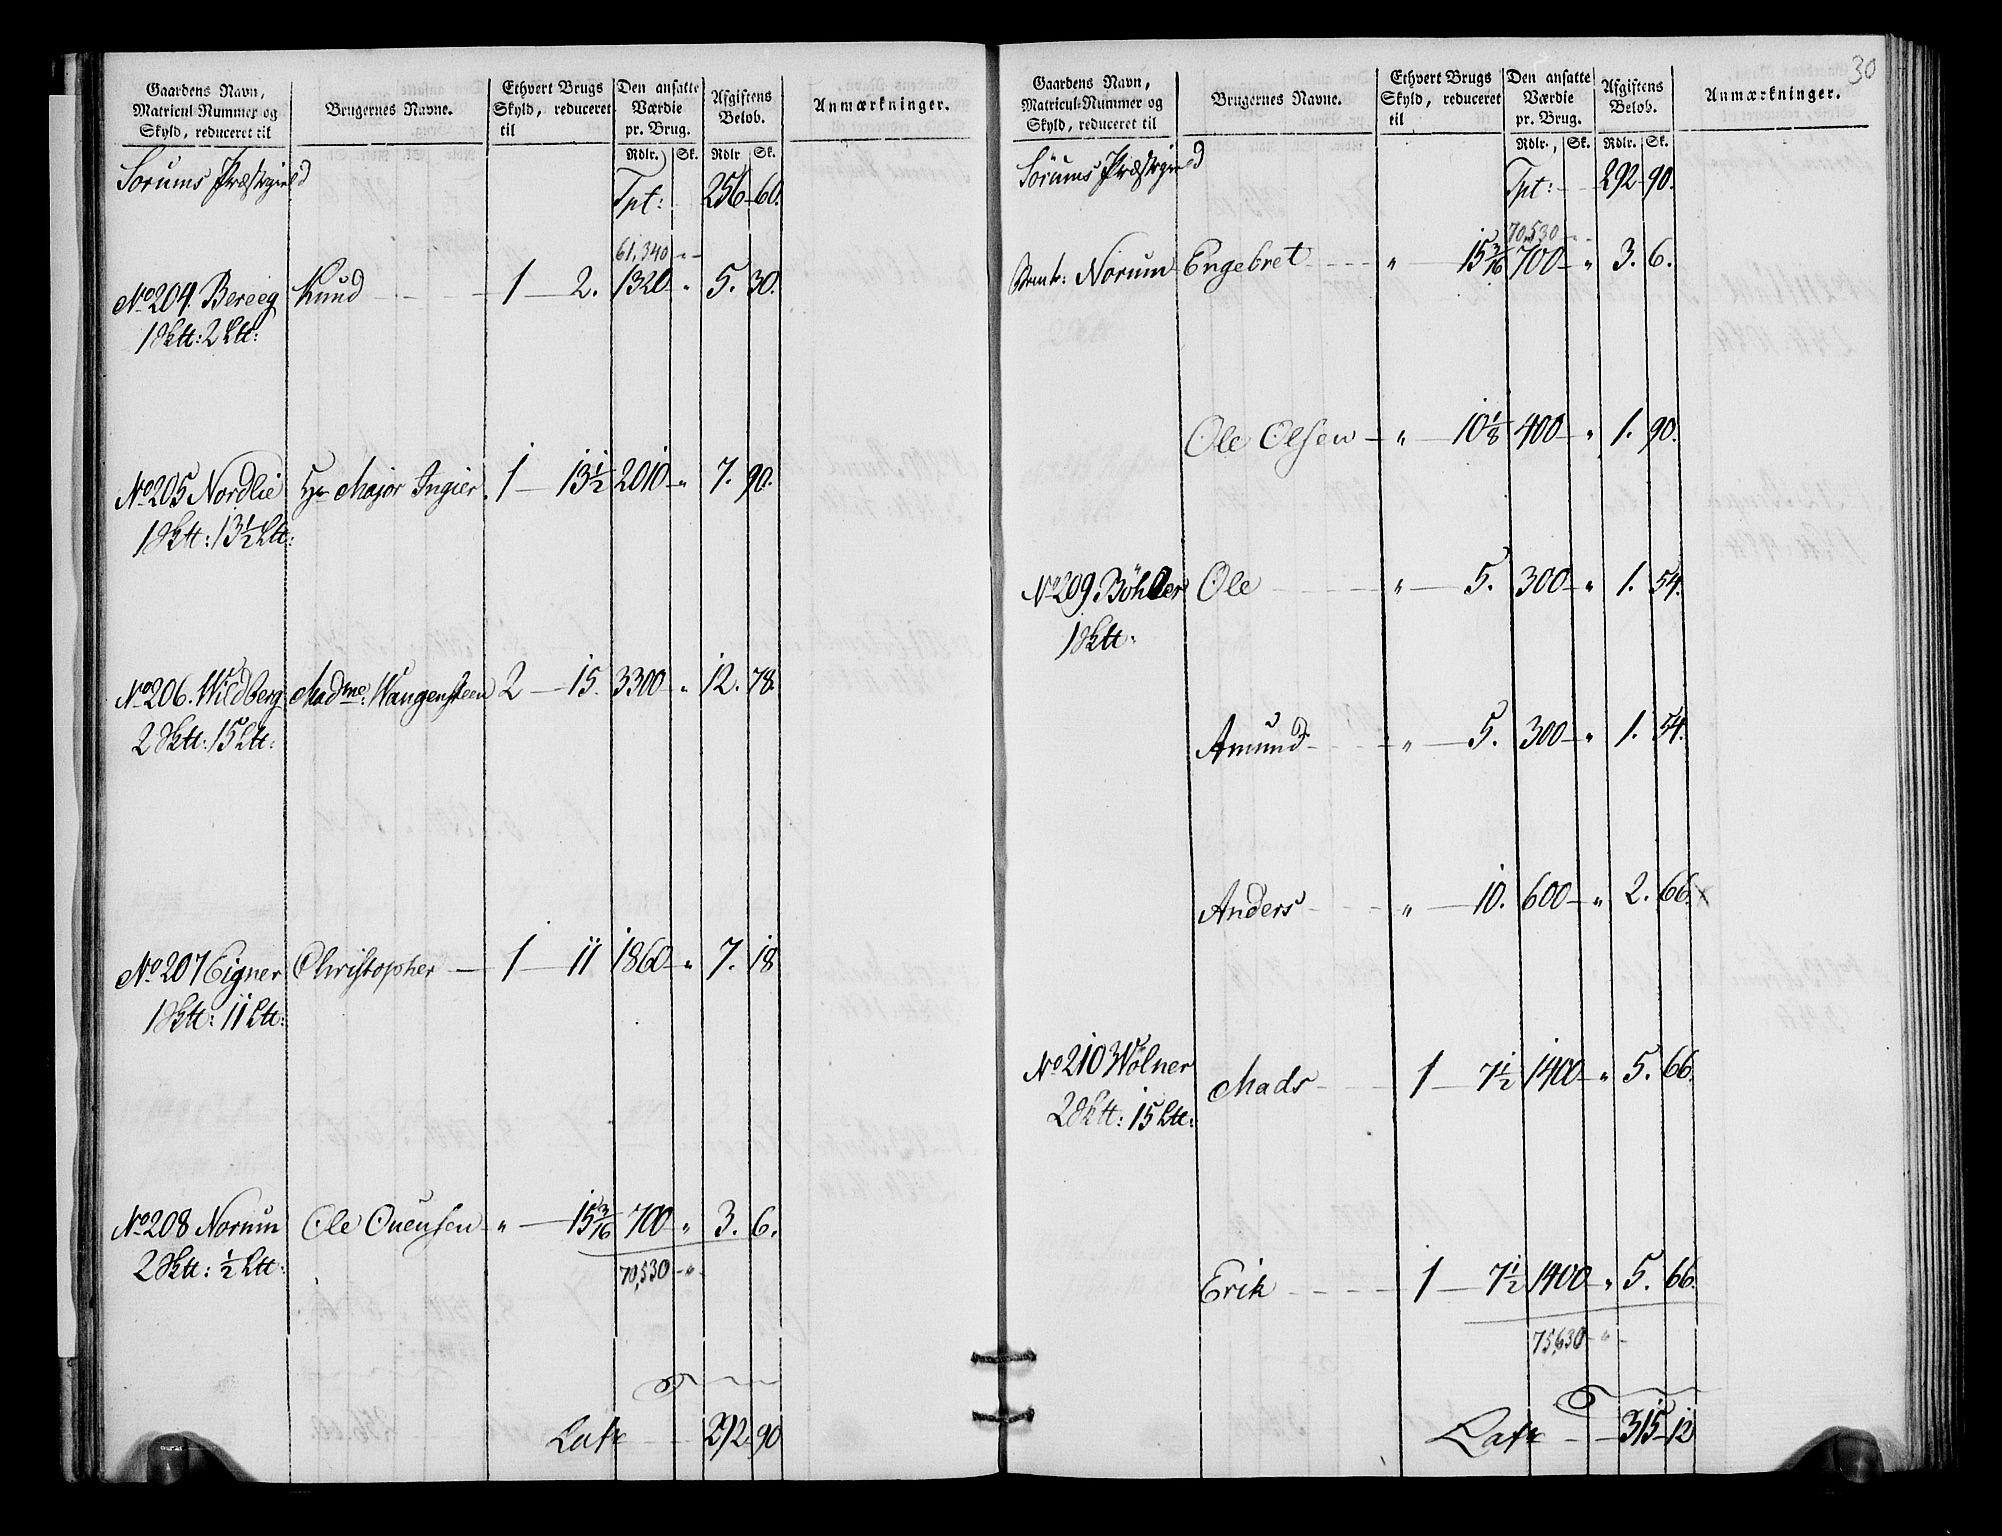 Gaardens Navn, Matricul-Nummer og Skyld, reduceret til | Brugernes Navne. | Ethvert Brugs Skyld, reduceret til | Den ansatte Værdie pr. Brug. | Afgiftens Beløb. | Anmærkninger.
Rdlr. | Sk. | Rdlr | Sk.
Sorums Præstegield Tpt: 256 60.
61,340 „ -
No 204. Bereeg Knud 1 2. 1320 „ 5. 30.
1 Sktt: 2 Ltt:
No 205 Nordlie Hr Major Ingier. 1 13½ 2010 „ 7. 90.
1 Sktt: 13½ Ltt:
No 206. Wildberg Madme: Wangensteen 2 15. 3300 „ 12. 78.
2 Sktt: 15 Ltt:
No 207 Eigner Christopher 1 11 1860 „ 7. 18
1 Sktt: 11 Ltt:
No 208 Norum Ole Ouensen „ 15 3/16 700 „ 3. 6.
2 Sktt: ½ Ltt:
70,530 „
Lats 292. 90
30
Gaardens Navn, Matricul-Nummer og Skyld, reduceret til | Brugernes Navne. | Ethvert Brugs Skyld, reduceret til | Den ansatte Værdie pr. Brug. | Afgiftens Beløb. | Anmærkninger.
Rdlr. | Sk. | Rdlr. | Sk.
Sörums Præstegield Tpt: 292 90.
70,530 „ -
Norum Engebret „ 15 3/16 700 „ 3. 6.
Ole Olsen „ 10 1/8 400 „ 1. 90.
No 209 Böhler Ole „ 5. 300 „ 1. 54.
1 Sktt:
Amund „ 5. 300 „ 1. 54.
Anders „ 10. 600 „ 2. 66.
No 210 Wölner Mads 1 7½ 1400 „ 5. 66.
2 Sktt: 15 Ltt:
Erik 1 7½ 1400 „ 5. 66.
75,630 „ -
Lats 315 12